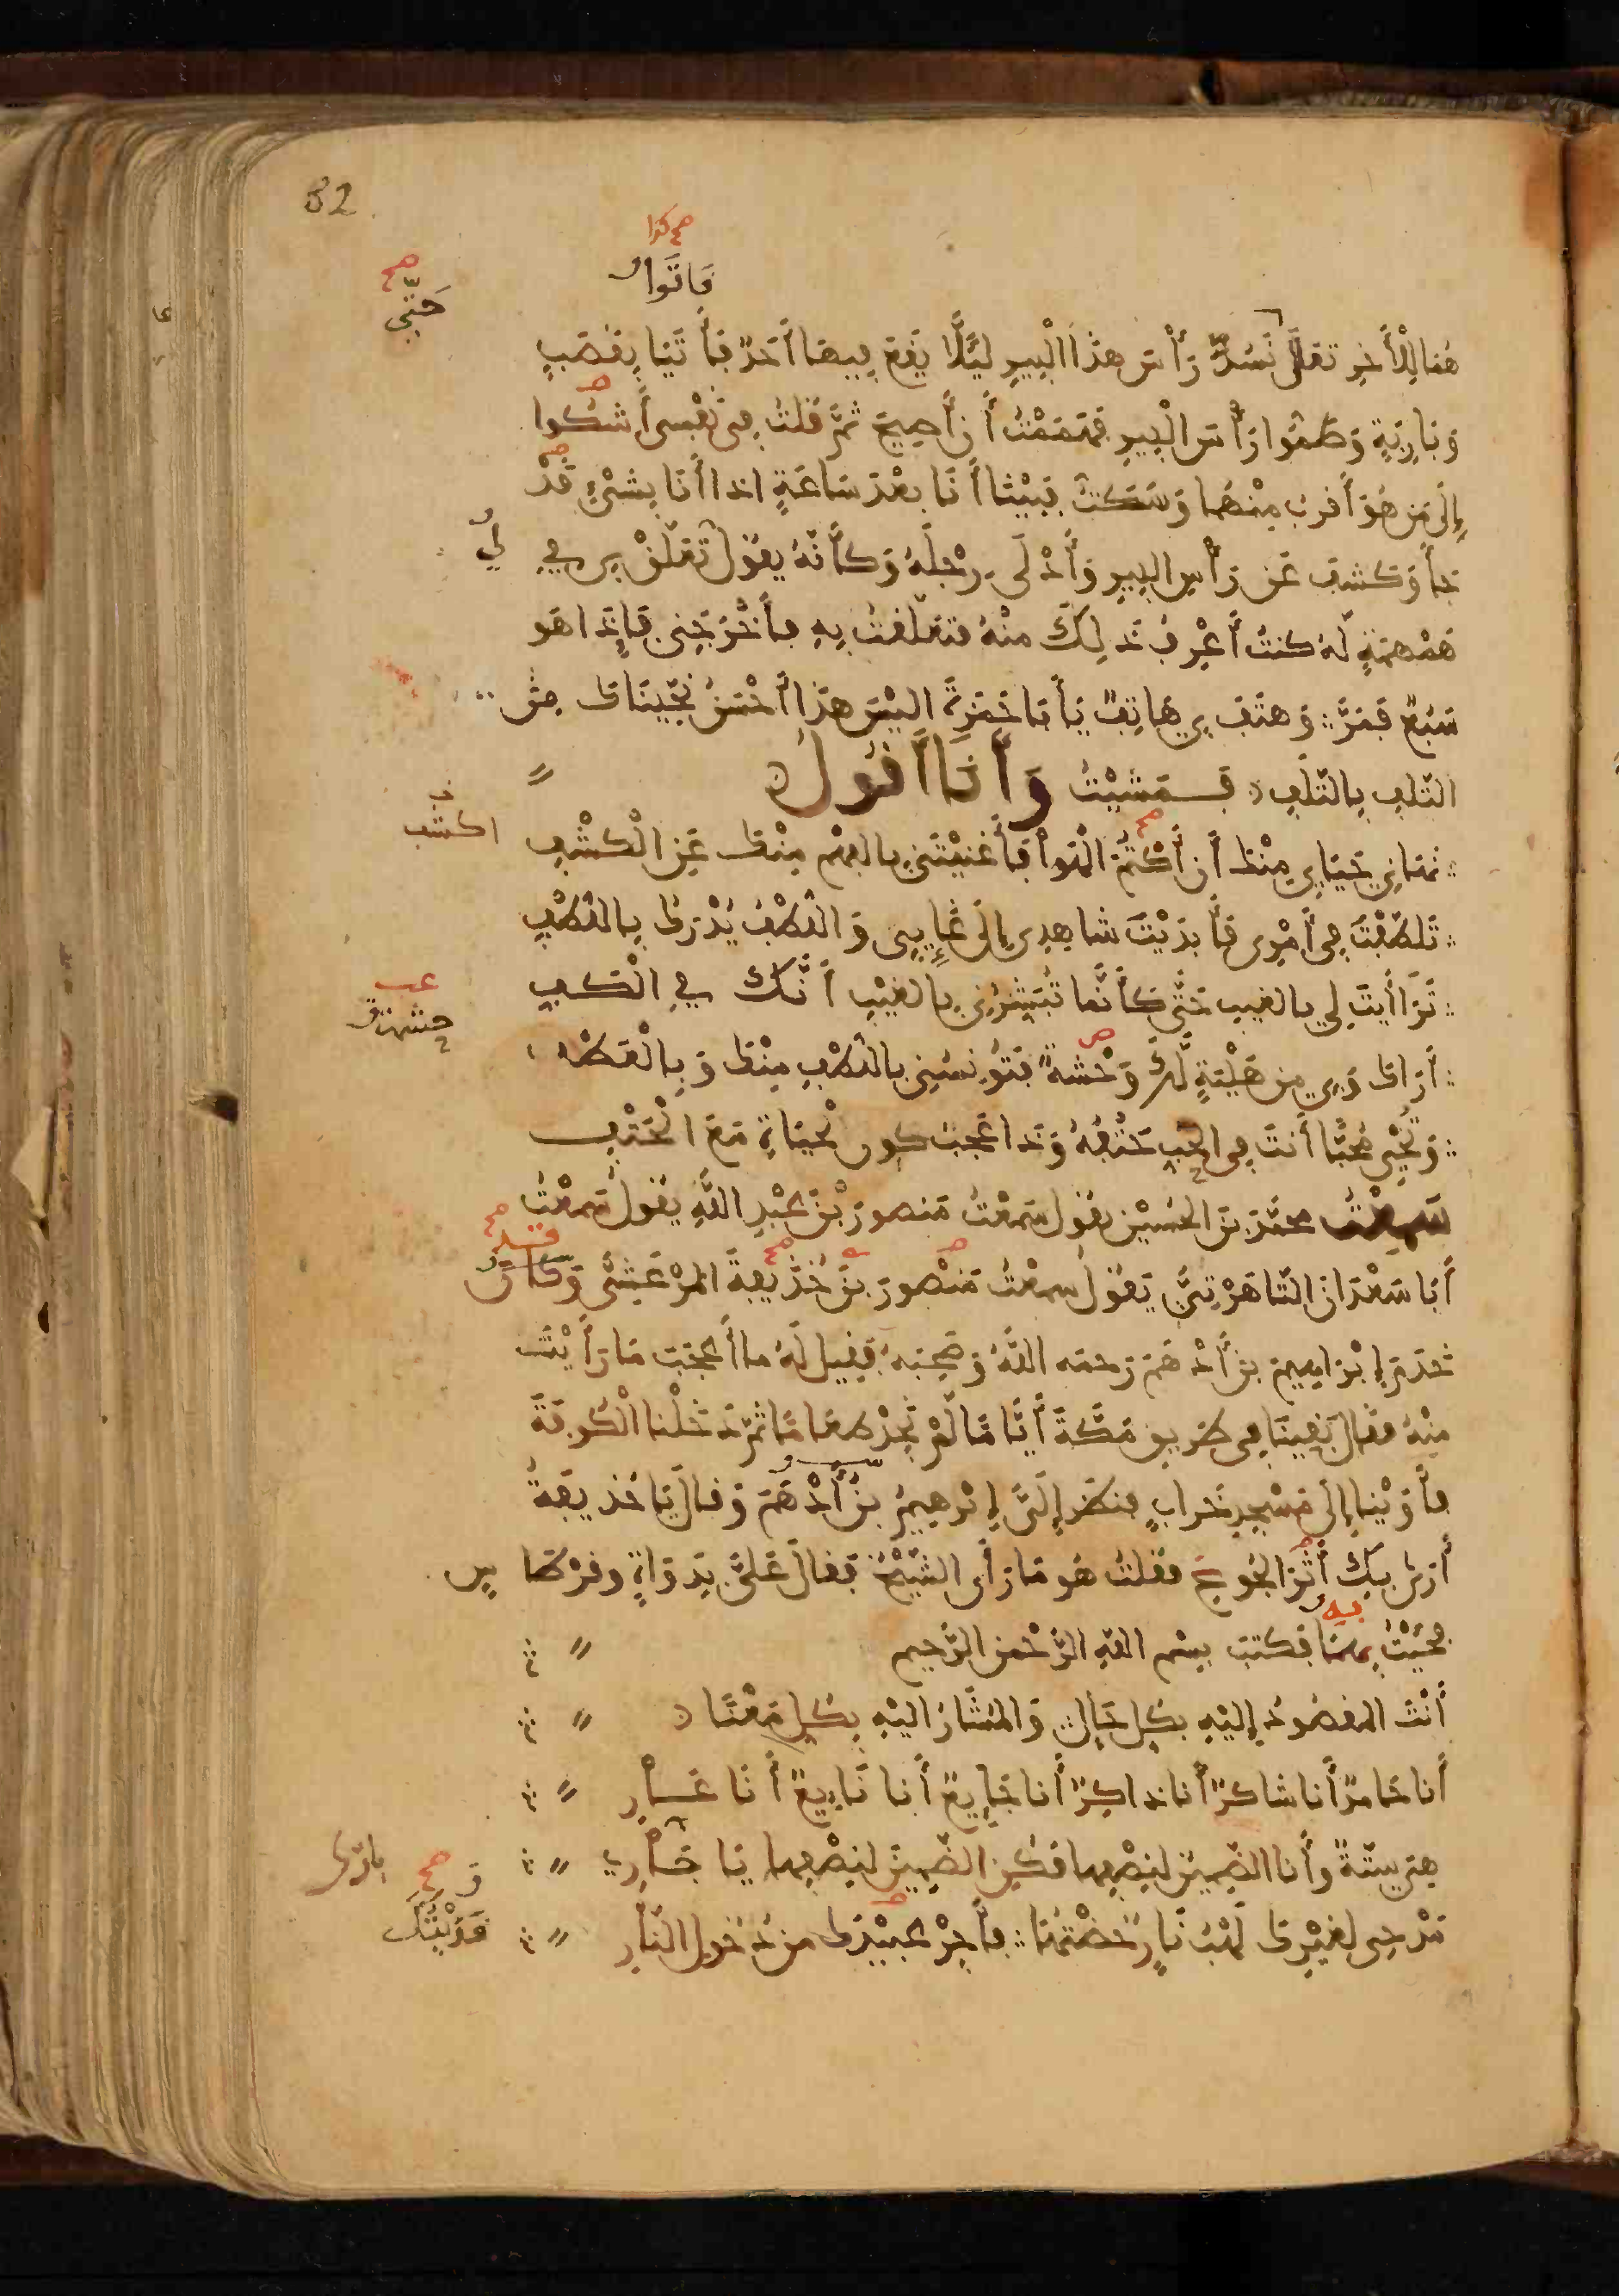 32
صح كذا
فاتوا
صح
حتى
هما لِلْأَخِرِ تعالَ نَسُدُّ رَأْسَ هذا الْبِيرِ لِيَلَّا يقع فيها أحدٌ فأتيا بقصبٍ
وبارِيَةٍ وطمُّوا رأسَ الْبِيرِ فهممْتُ أن أصيحَ ثمَّ قلتُ في نفسي أشكوا
إلى من هو أقرب منهما وسكتُّ فبينا أنا بعد ساعةٍ اذا أنا بشيْءٍ قدْ
جأ وكشف عن رأس البير وأدلى رجلَهُ وكأنَّهُ يقول تعلَّقْ بي في
لي
همهمةٍ لَّه كنتُ أعرف ذلك منه فتعلقتُ به فأخرجني فإذا هو
سَبُعٌ فمرَّ وهتف بي هاتفٌ يأبا حمزةَ أليس هذا أحسَنُ نجَّيناك من
التلف بالتلف فمشيْتُ وَأَنَا أَقُولُ
نهاني حيايِ منك أن أكتُمَ الهوأ فأغنيْتَني بالفهم منك عن الْكشْفِ
صح
خ
اكشف
تلطَّفْتَ في أمري فأبديْتَ شاهدي إلى غايبي واللطفُ يُدْرَكُ باللطْفِ
تراأيتَ لي بالغيب حتَّى كأنَّما تُبشِّرُني بالغيْبِ أنَّك في الْكفِ
أراك وبي من هيْبَةٍ لَّك وحْشةٌ فتؤنسُني باللطْفِ منْك وبالْعَطْف
وتُحْيي مُحِبًّا أنتَ في الحُبِّ حَتْفُهُ وذا عجبٌ كون الْحياةِ مع الْحَتْفِ
سَمِعْتُ محمَّد بن الحُسَيْن يقول سَمعْتُ منصور بْن عبْدِ اللَّهِ يقولُ سَمِعْتُ
أبا سَعْدان التَّاهَرْتِيَّ يقولُ سمعْتُ مَنْصورَ بنَ خُذَيفةَ المرْعَشي وكان
صح
قد
خدمَ إبْراهيم بن أدهَمَ رحمه اللَّهُ وصَحِبَهُ فقيل لَهُ ما أعجبَ ما رأيْتَ
مِنْهُ فقال بَقِينَا في طريق مكَّةَ أيَّامًا لَّمْ نجدْ طعامًا ثمَّ دخلْنا الْكُوفَةَ
فأوَيْنا إلى مَسْجِدٍ خرابٍ فنظر إلَيَّ إبْرهيمُ بنُ أَدْهَمَ وقال يَا خُذيفةُ
أرى بِكَ أثرَ الجُوعِ فقلتُ هُو ما رأى الشيْخُ فقال عَلَيَّ بِدَواةٍ وقرْطا س
به
فجيْتُ بهما فكتب بسْم اللهِ الرَّحْمنِ الرَّحيم
أنْتَ المقصُودُ إليْهِ بكلِّ حالٍ وَالمُشَارُ اليْهِ بكلِّ مَعْنًا
أنا حامدٌ أنا شاكرٌ أنا ذاكرٌ أنا جايعٌ أنا نايعٌ أنا عارِ
هي ستَّةٌ وأنا الضمينُ لنصْفِها فكُن الضمينَ لنصْفِها يا جارِي
مَدْحي لغيْرِك لَهْبُ نارٍ خضْتُها فأجِرْ عُبَيْدَكَ من دخول النارِ
صح